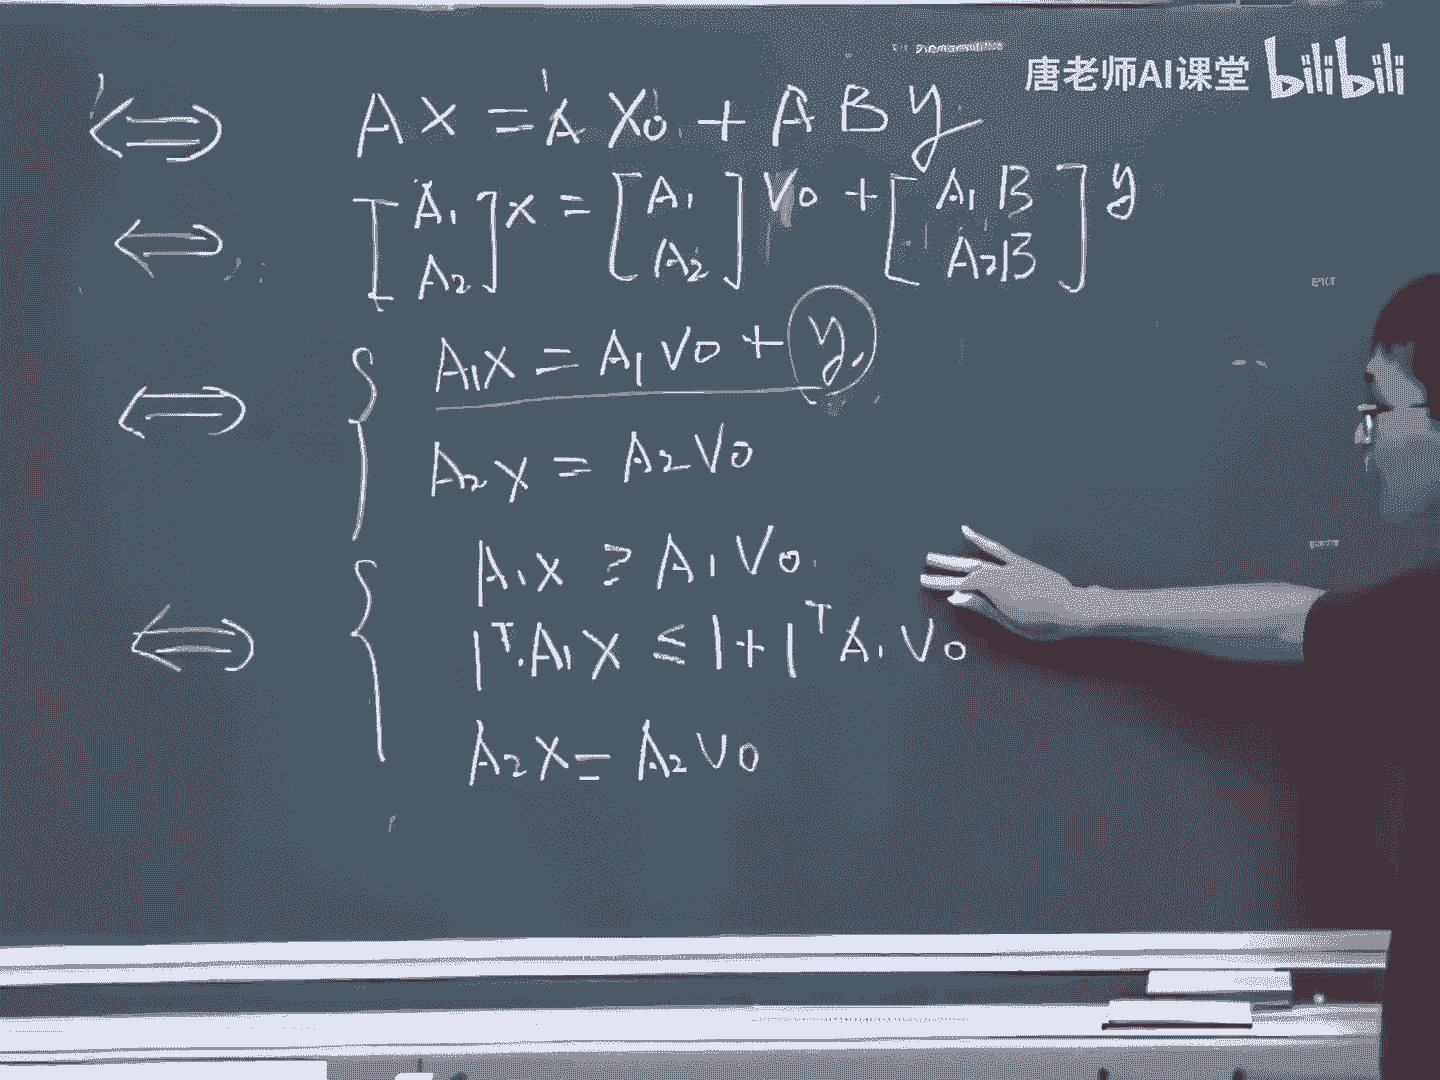 唐老师AI课堂 bilibili
⟺ Ax = A X₀ + A B y
⟺ [A₁ A₂] x = [A₁ A₂] V₀ + [A₁B A₂B] y
⟺ { A₁x = A₁V₀ + y
A₂x = A₂V₀
⟺ { A₁x ≥ A₁V₀
1ᵀ·A₁x ≤ 1 + 1ᵀA₁V₀
A₂x = A₂V₀